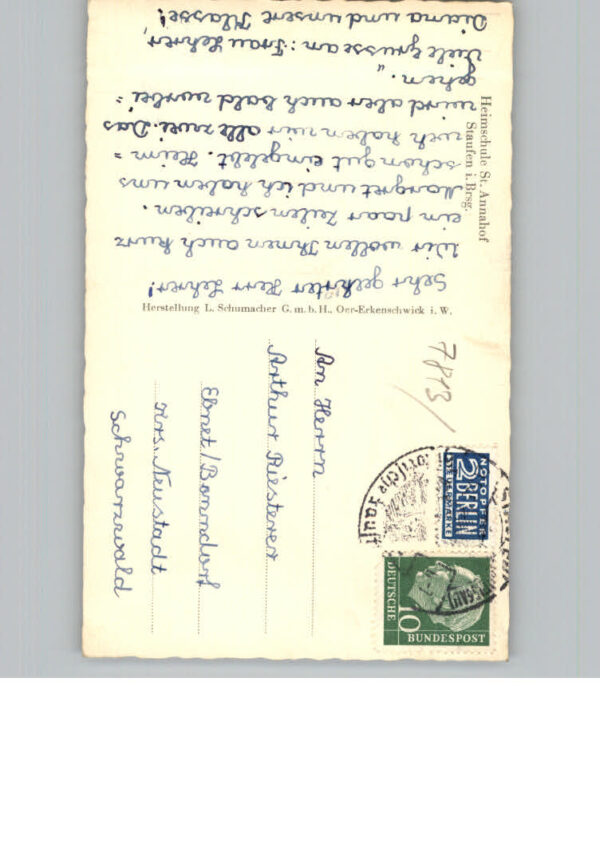 Heimschule St. Annahof
Staufen i. Brsg.
Sehr geehrter Herr Lehrer!
Wir wollen Ihnen auch kurz
ein paar Zeilen schreiben.
Margret und ich haben uns
schon gut eingelebt. Heim=
weh haben wir alle zwei. Das
wird aber auch bald vorbei=
gehen.
Viele Grüsse an: Frau Lehrer,
Diana und unsere Klasse!
Herstellung L. Schumacher G. m. b. H., Oer-Erkenschwick i. W.
7813/
NOTOPFER
2 BERLIN
STEUERMARKE
10
DEUTSCHE
BUNDESPOST
An Herrn
Arthur Riesterer
Ebnet/Bonndorf
Krs. Neustadt
Schwarzwald